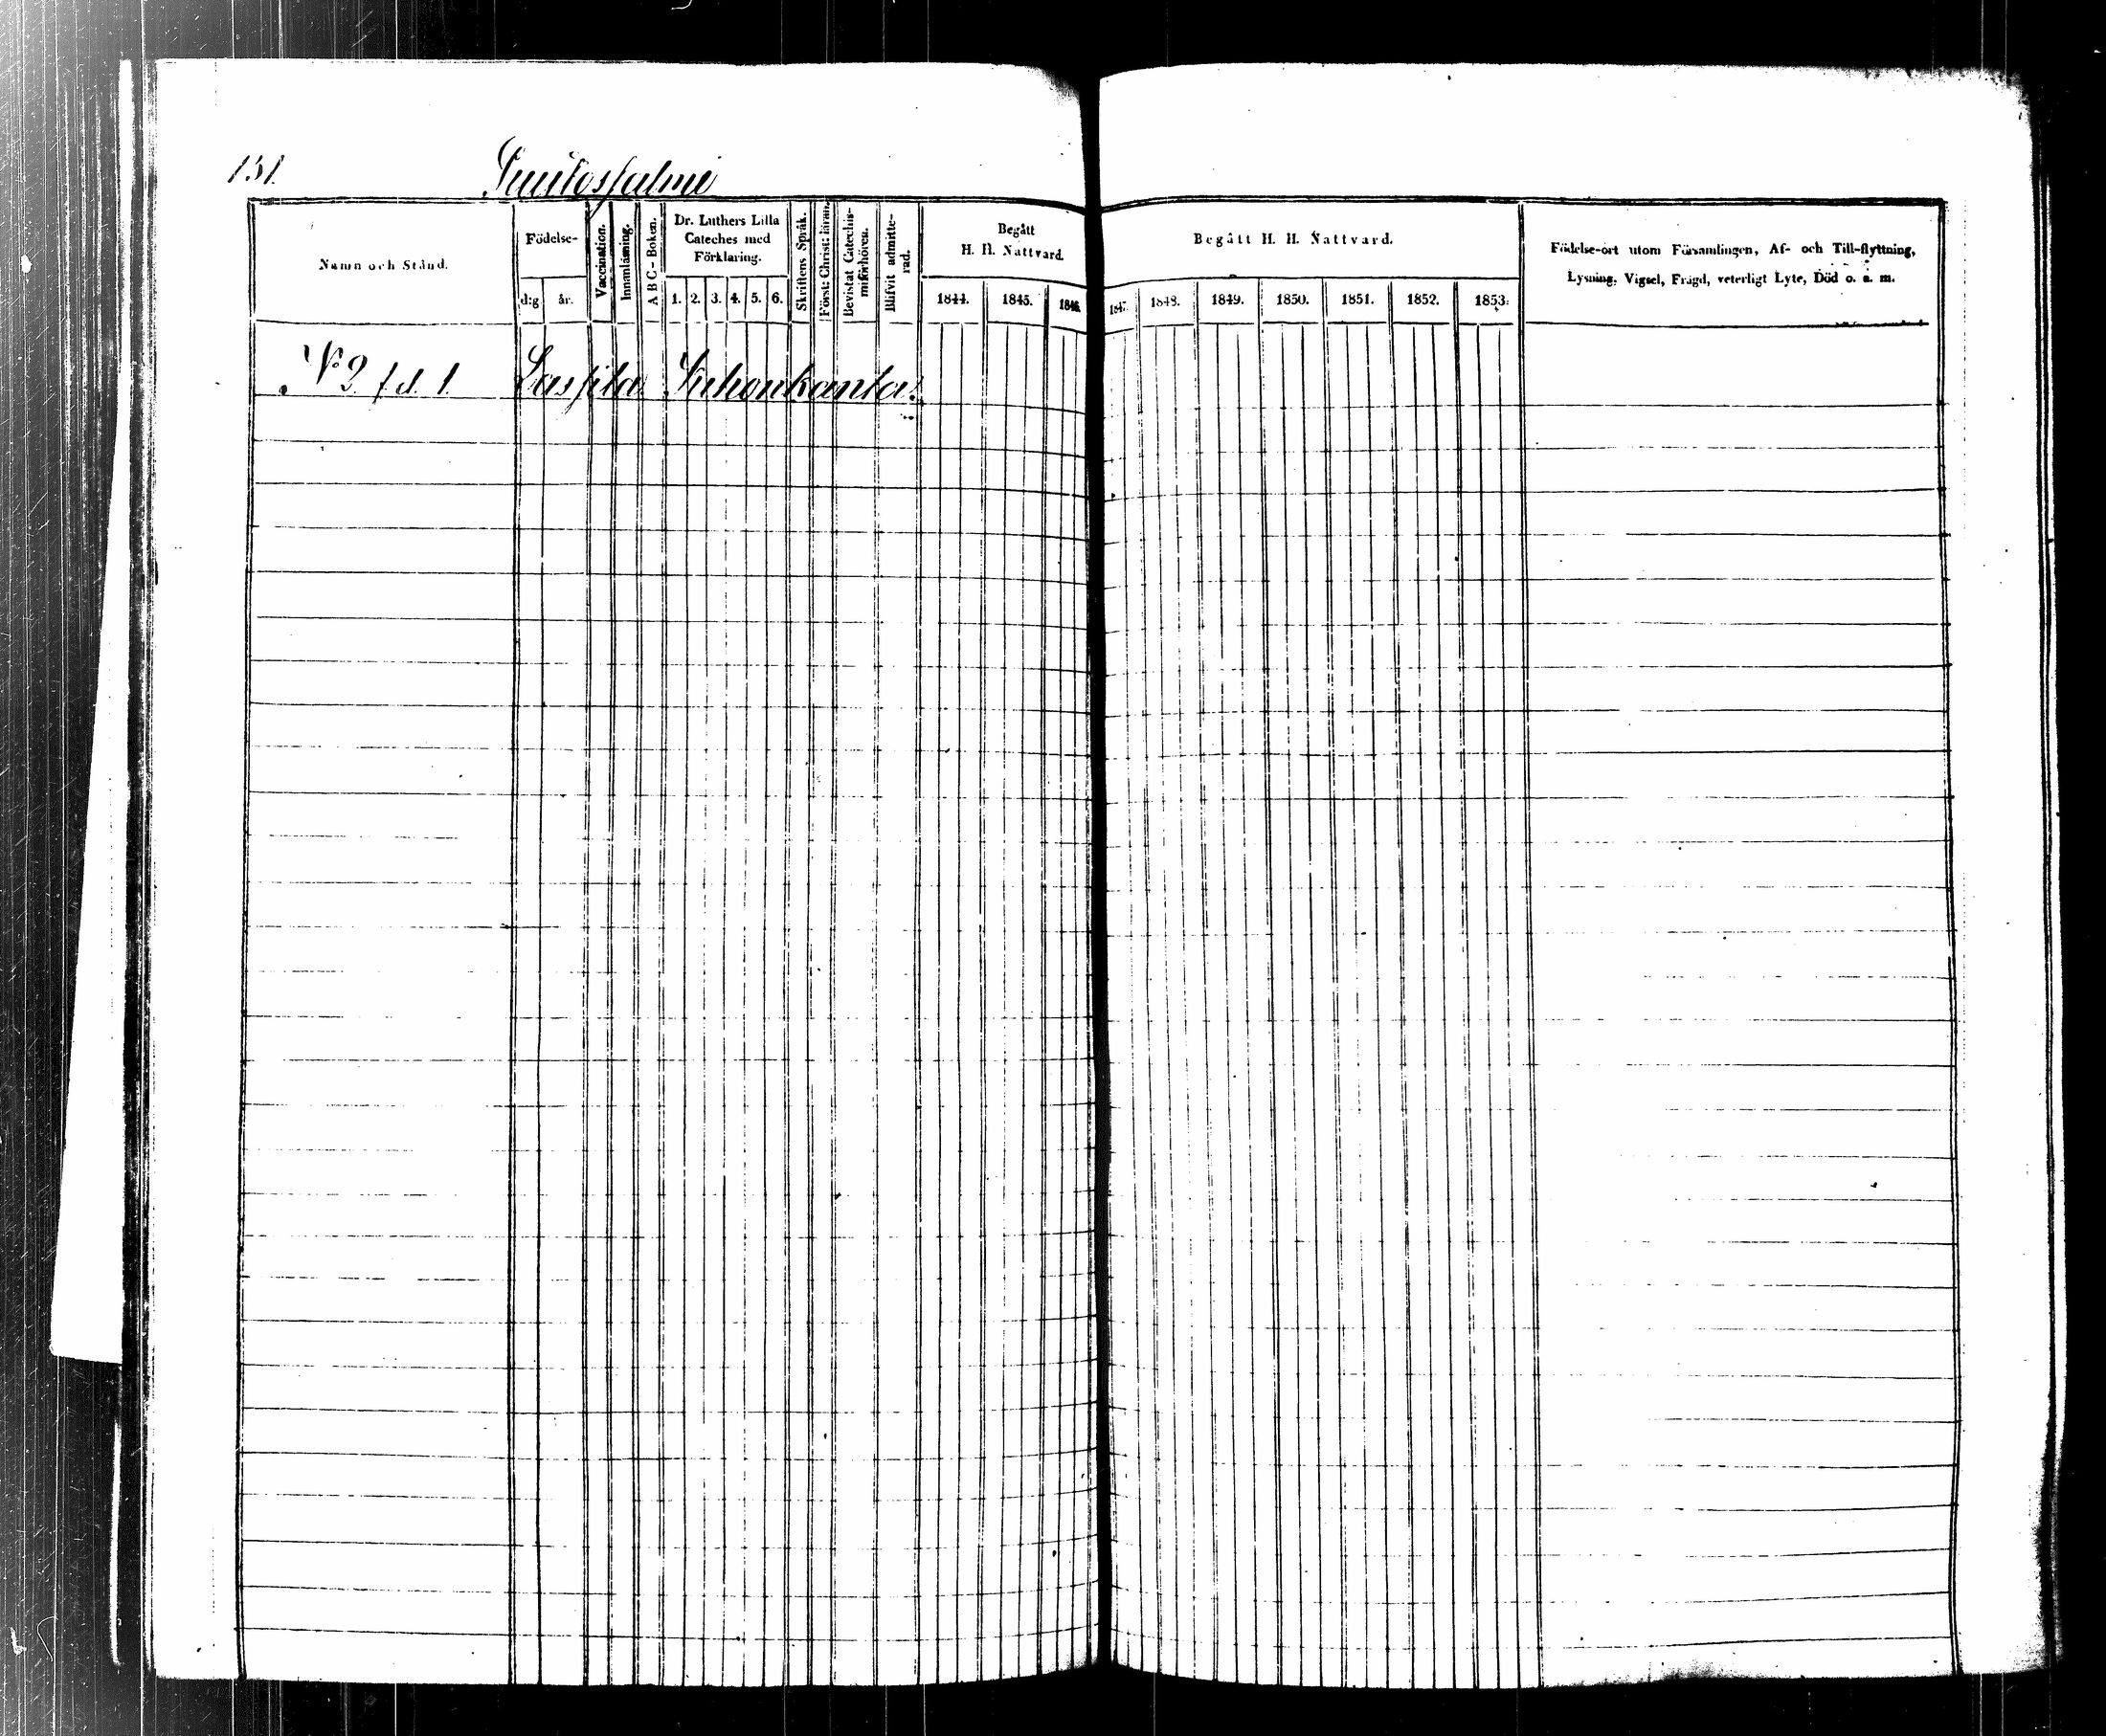 131.
Suutosalmi
Namn och Stånd.
Födelse-
d:g
år.
Vaccination.
Innanläsning.
A B C - Boken.
Dr. Luthers Lilla
Cateches med
Förklaring.
1. 2. 3. 4. 5. 6.
Skriftens Språk.
Först: Christ: läran.
Bevistat Catechis-
miförhören.
Blifvit admitte-
rad.
Begått
H. H. Nattvard.
1844. 1845. 1846.
Begått H. H. Nattvard.
1847. 1848. 1849. 1850. 1851. 1852. 1853.
Födelse-ort utom Församlingen, Af- och Till-flyttning,
Lysning, Vigsel, Frägd, veterligt Lyte, Död o. a. m.
N:o 2 f.d. 1